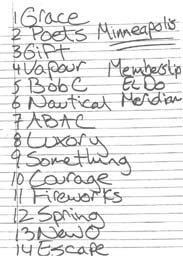 1 Grace
2 Poets Minneapolis
3 Gift
4 Vapour Membership
5 BobC ElDo
6 Nautical Meridian
7 ABAC
8 Luxury
9 Something
10 Courage
11 Fireworks
12 Spring
13 NewO
14 Escape